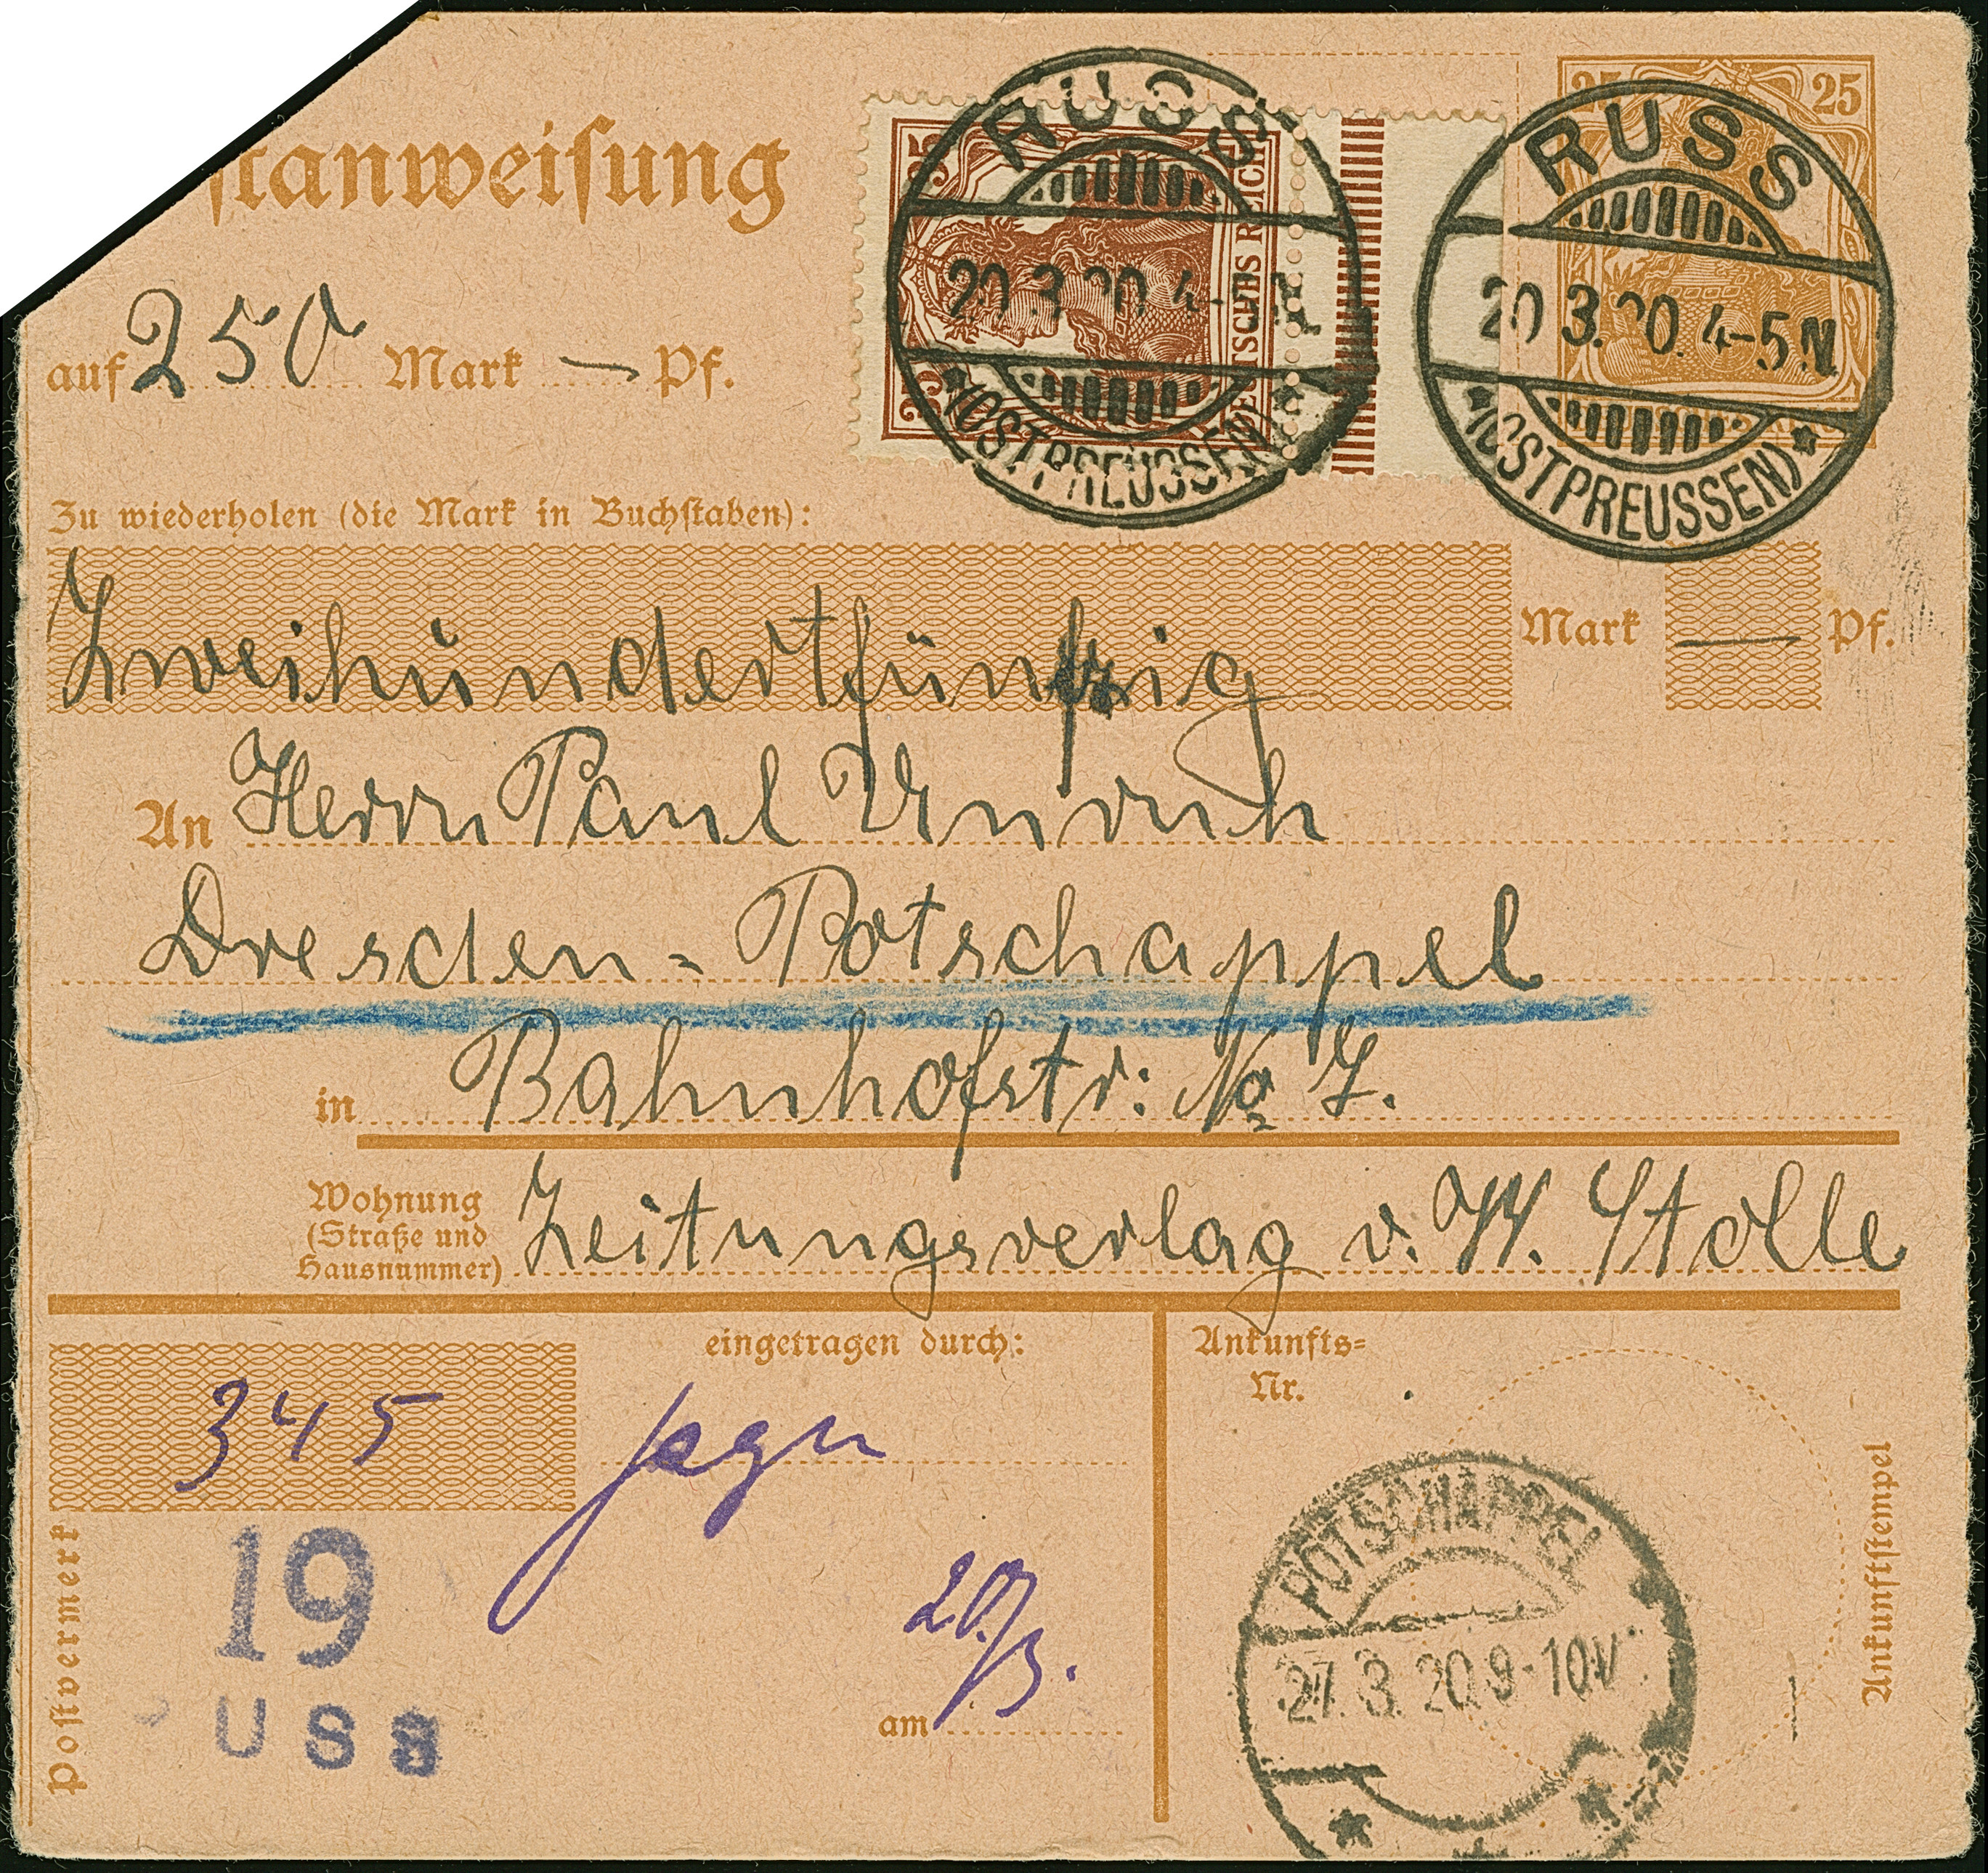 stanweisung
RUSS
35 35
DEUTSCHES REICH
20.3.20.4-5N
*(OSTPREUSSEN)*
35
25 25
RUSS
20.3.20.4-5N
*(OSTPREUSSEN)*
auf 250 Mark — Pf.
Zu wiederholen (die Mark in Buchstaben):
Zweihundertfünfzig Mark — Pf.
An Herrn Paul Unruh
Dresden-Potschappel
in Bahnhofstr: No 7.
Wohnung
(Straße und
Hausnummer)
Zeitungsverlag v. W. Stolle
345
eingetragen durch:
Postvermerk
19
USS
am 20/3.
Ankunfts=
Nr.
Ankunftstempel
POTSCHAPPEL
27.3.20.9-10V
* *